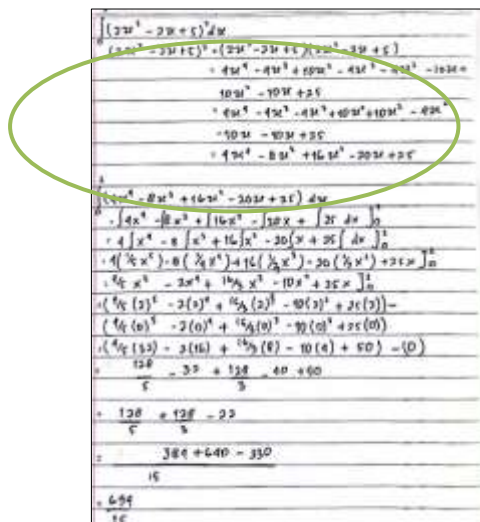 ∫(2x² - 2x + 5)² dx
(2x² - 2x + 5)² = (2x² - 2x + 5)(2x² - 2x + 5)
= 4x⁴ - 4x³ + 10x² - 4x³ - 4x² - 10x +
10x² - 10x + 25
= 4x⁴ - 4x³ - 4x³ + 10x² + 10x² - 4x²
- 10x - 10x + 25
= 4x⁴ - 8x³ + 16x² - 20x + 25
∫(4x⁴ - 8x³ + 16x² - 20x + 25) dx
= ∫4x⁴ - ∫8x³ + ∫16x² - ∫20x + ∫25 dx ]₀²
= 4∫x⁴ - 8∫x³ + 16∫x² - 20∫x + 25∫ dx ]₀²
= 4(⅕x⁵) - 8(¼x⁴) + 16(⅓x³) - 20(½x²) + 25x ]₀²
= 4/5 x⁵ - 2x⁴ + 16/3 x³ - 10x² + 25x ]₀²
= (4/5 (2)⁵ - 2(2)⁴ + 16/3 (2)³ - 10(2)² + 25(2)) -
(4/5 (0)⁵ - 2(0)⁴ + 16/3 (0)³ - 10(0)² + 25(0))
= (4/5 (32) - 2(16) + 16/3 (8) - 10(4) + 50) - (0)
= 128/5 - 32 + 128/3 - 40 + 50
= 128/5 + 128/3 - 22
= 384 + 640 - 330 / 15
= 694/15